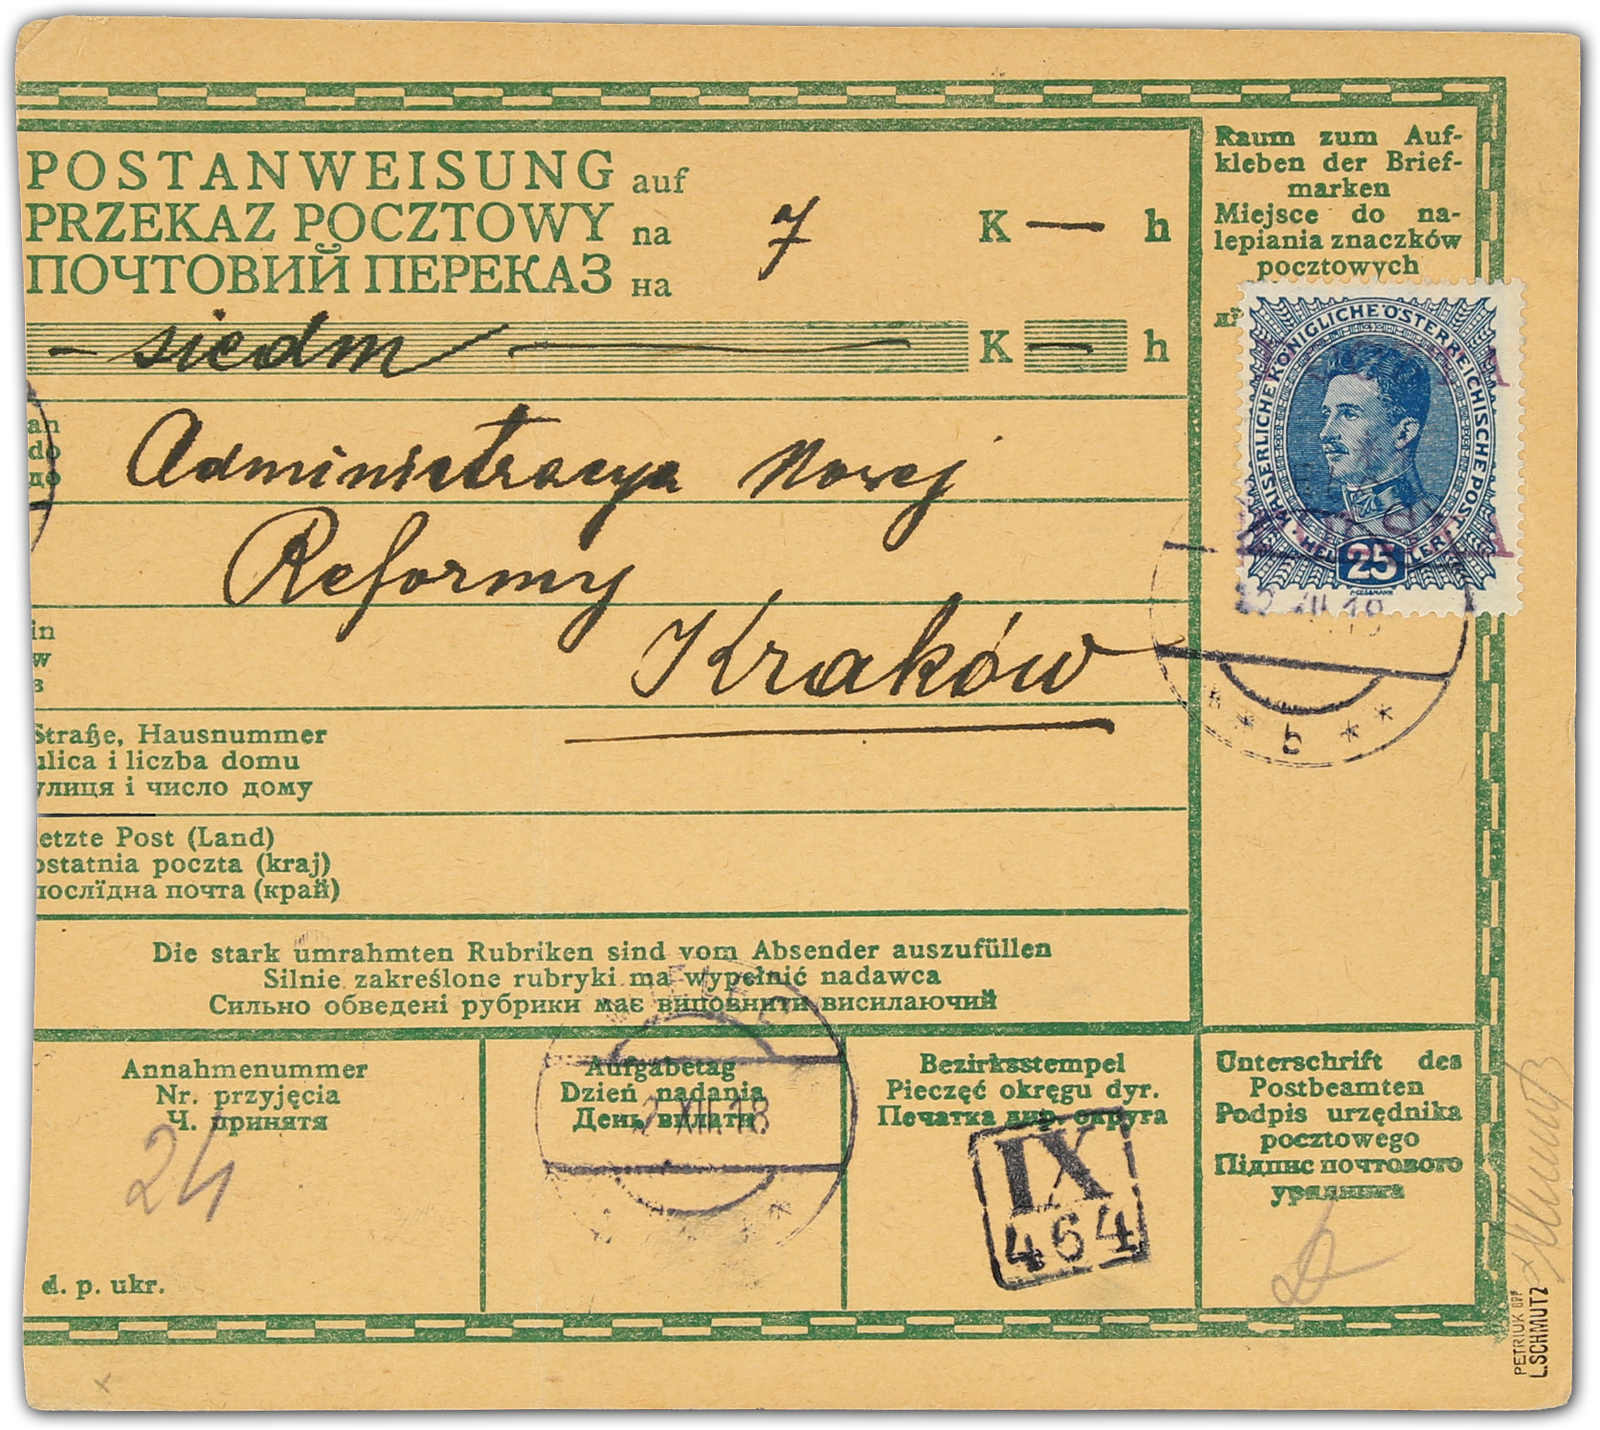 POSTANWEISUNG auf
PRZEKAZ POCZTOWY na 7 K — h
ПОЧТОВИЙ ПЕРЕКАЗ на
— siedm — K — h
an
do
до
Administracya Nowej
Reformy
in
w
в
Kraków
Straße, Hausnummer
ulica i liczba domu
улиця і число дому
letzte Post (Land)
ostatnia poczta (kraj)
послїдна почта (край)
Die stark umrahmten Rubriken sind vom Absender auszufüllen
Silnie zakreślone rubryki ma wypełnić nadawca
Сильно обведені рубрики має виповнити висилаючий
Raum zum Auf-
kleben der Brief-
marken
Miejsce do na-
lepiania znaczków
pocztowych
KAISERLICHE KÖNIGLICHE ÖSTERREICHISCHE POST
25
XII 18
* b * *
Annahmenummer
Nr. przyjęcia
Ч. принятя
24
d. p. ukr.
Aufgabetag
Dzień nadania
День
2 XII 18
Bezirksstempel
Pieczęć okręgu dyr.
Печатка дир. округа
IX
464
Unterschrift des
Postbeamten
Podpis urzędnika
pocztowego
Підпис почтового
урядника
PETRIUK BPP
L.SCHMUTZ